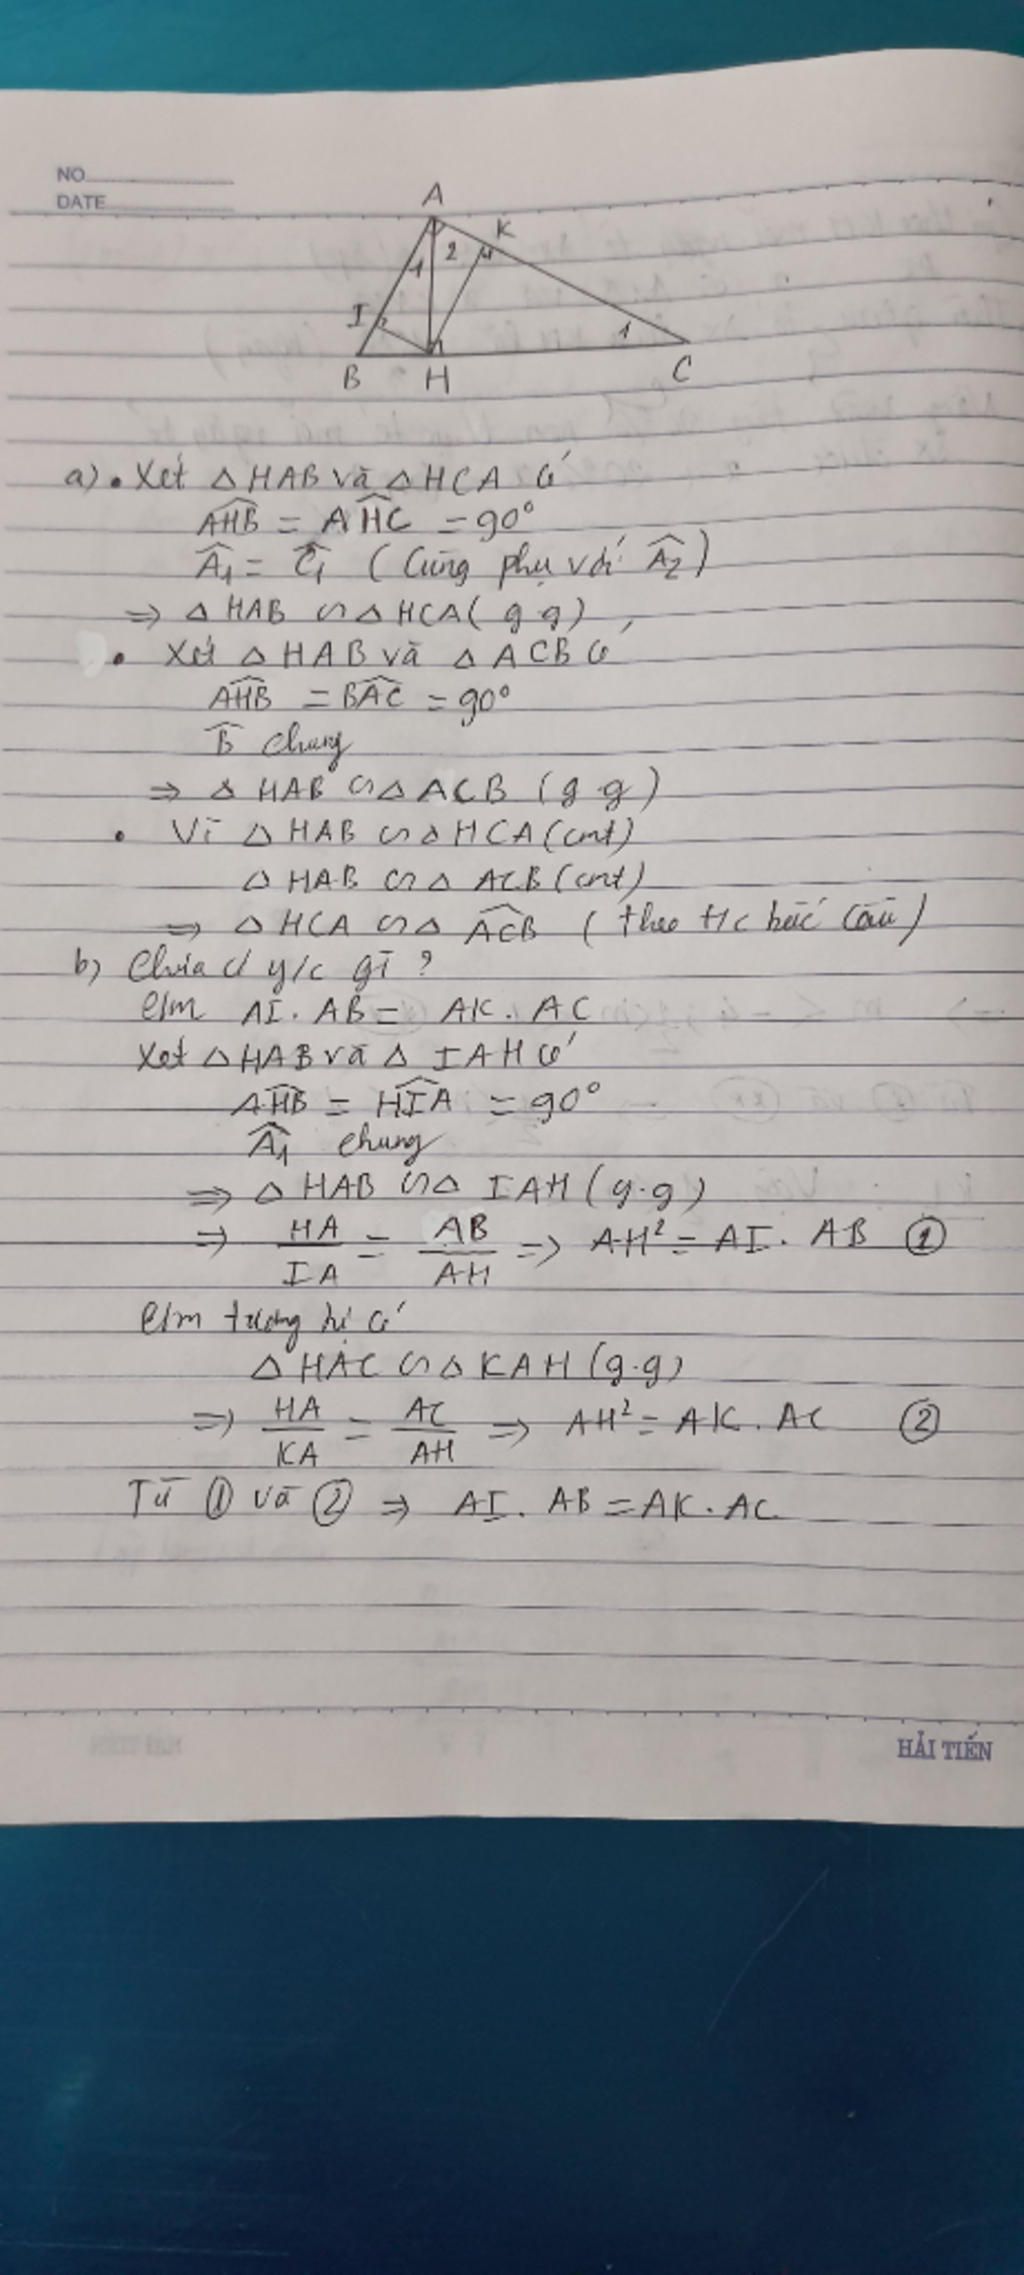 NO
DATE
A
K
1 2
I
1
B H C
a) • Xét △HAB và △HCA có
$\widehat{AHB}$ = $\widehat{AHC}$ = 90°
$\widehat{A_1}$ = $\widehat{C_1}$ (Cùng phụ với $\widehat{A_2}$)
⇒ △HAB ∽ △HCA (g.g)
• Xét △HAB và △ACB có
$\widehat{AHB}$ = $\widehat{BAC}$ = 90°
$\widehat{B}$ chung
⇒ △HAB ∽ △ACB (g g)
• Vì △HAB ∽ △HCA (cmt)
△HAB ∽ △ACB (cmt)
⇒ △HCA ∽ △$\widehat{ACB}$ (theo t/c bắc cầu)
b) Chưa có y/c gì ?
C/m AI. AB = AK. AC
Xét △HAB và △IAH có
$\widehat{AHB}$ = $\widehat{HIA}$ = 90°
$\widehat{A_1}$ chung
⇒ △HAB ∽ △IAH (g.g)
⇒ HA/IA = AB/AH ⇒ AH² = AI. AB ①
C/m tương tự có
△HAC ∽ △KAH (g.g)
⇒ HA/KA = AC/AH ⇒ AH² = AK. AC ②
Từ ① và ② ⇒ AI. AB = AK. AC
HẢI TIẾN